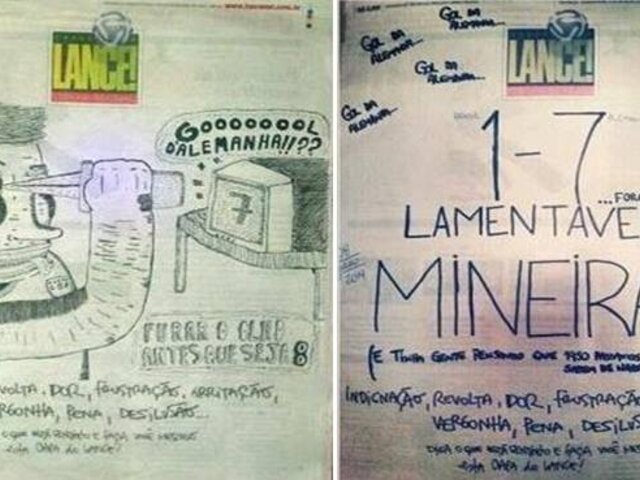 LANCE!
GOOOOOOOL
D'ALEMANHA!!!??
7
FURAR O OLHO
ANTES QUE SEJA 8
REVOLTA, DOR, FRUSTRAÇÃO, IRRITAÇÃO,
VERGONHA, PENA, DESILUSÃO...
E FAÇA VOCÊ MESMO
ESTA CAPA DO LANCE!
GOL DA
ALEMANHA...
GOL DA
ALEMANHA...
GOL DA
ALEMANHA...
GOL DA
ALEMANHA...
LANCE!
1-7
...FORA
LAMENTAVE
MINEIRA
(E TINHA GENTE PENSANDO QUE
INDIGNAÇÃO, REVOLTA, DOR, FRUSTRAÇÃO
VERGONHA, PENA, DESILUS
DIGA O QUE ESTÁ SENTINDO E FAÇA VOCÊ MES
ESTA CAPA DO LANCE!